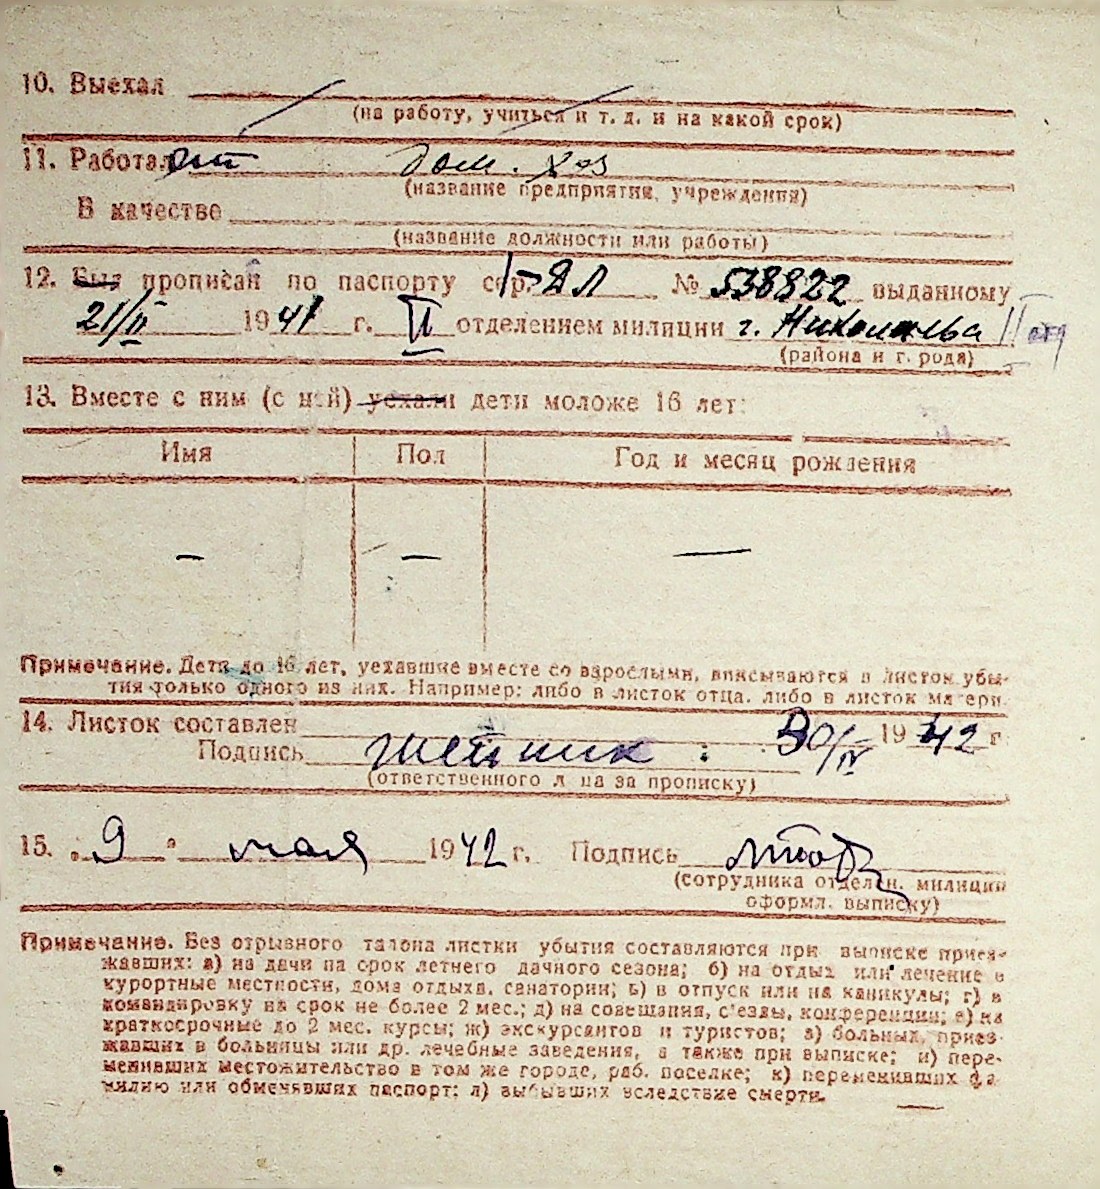 10. Выехал
(на работу, учиться и т. д. и на какой срок)
11. Работал дом. хоз
(название предприятия, учреждения)
В качестве
(название должности или работы)
12. Был прописан по паспорту сер. № 538822 выданному
21/II 1941 г. II отделением милиции г. Николаева II
(района и г. рода)
13. Вместе с ним (с ней) уехали дети моложе 16 лет:
Имя Пол Год и месяц рождения
— — —
Примечание. Дети до 16 лет, уехавшие вместе со взрослыми, вписываются в листок убы-
тия только одного из них. Например: либо в листок отца. либо в листок матери.
14. Листок составлен 30/IV 1942 г.
Подпись
(ответственного лица за прописку)
15. „9" мая 1942 г. Подпись
(сотрудника отделен. милиции
оформл. выписку)
Примечание. Без отрывного талона листки убытия составляются при выписке приез-
жавших: а) на дачи на срок летнего дачного сезона; б) на отдых или лечение в
курортные местности, дома отдыха, санатории; в) в отпуск или на каникулы; г) в
командировку на срок не более 2 мес.; д) на совещания, с'езды, конференции; е) на
краткосрочные до 2 мес. курсы; ж) экскурсантов и туристов; з) больных, приез-
жавших в больницы или др. лечебные заведения, а также при выписке; и) пере-
менивших местожительство в том же городе, раб. поселке; к) переменивших фа-
милию или обменявших паспорт; л) выбывших вследствие смерти.